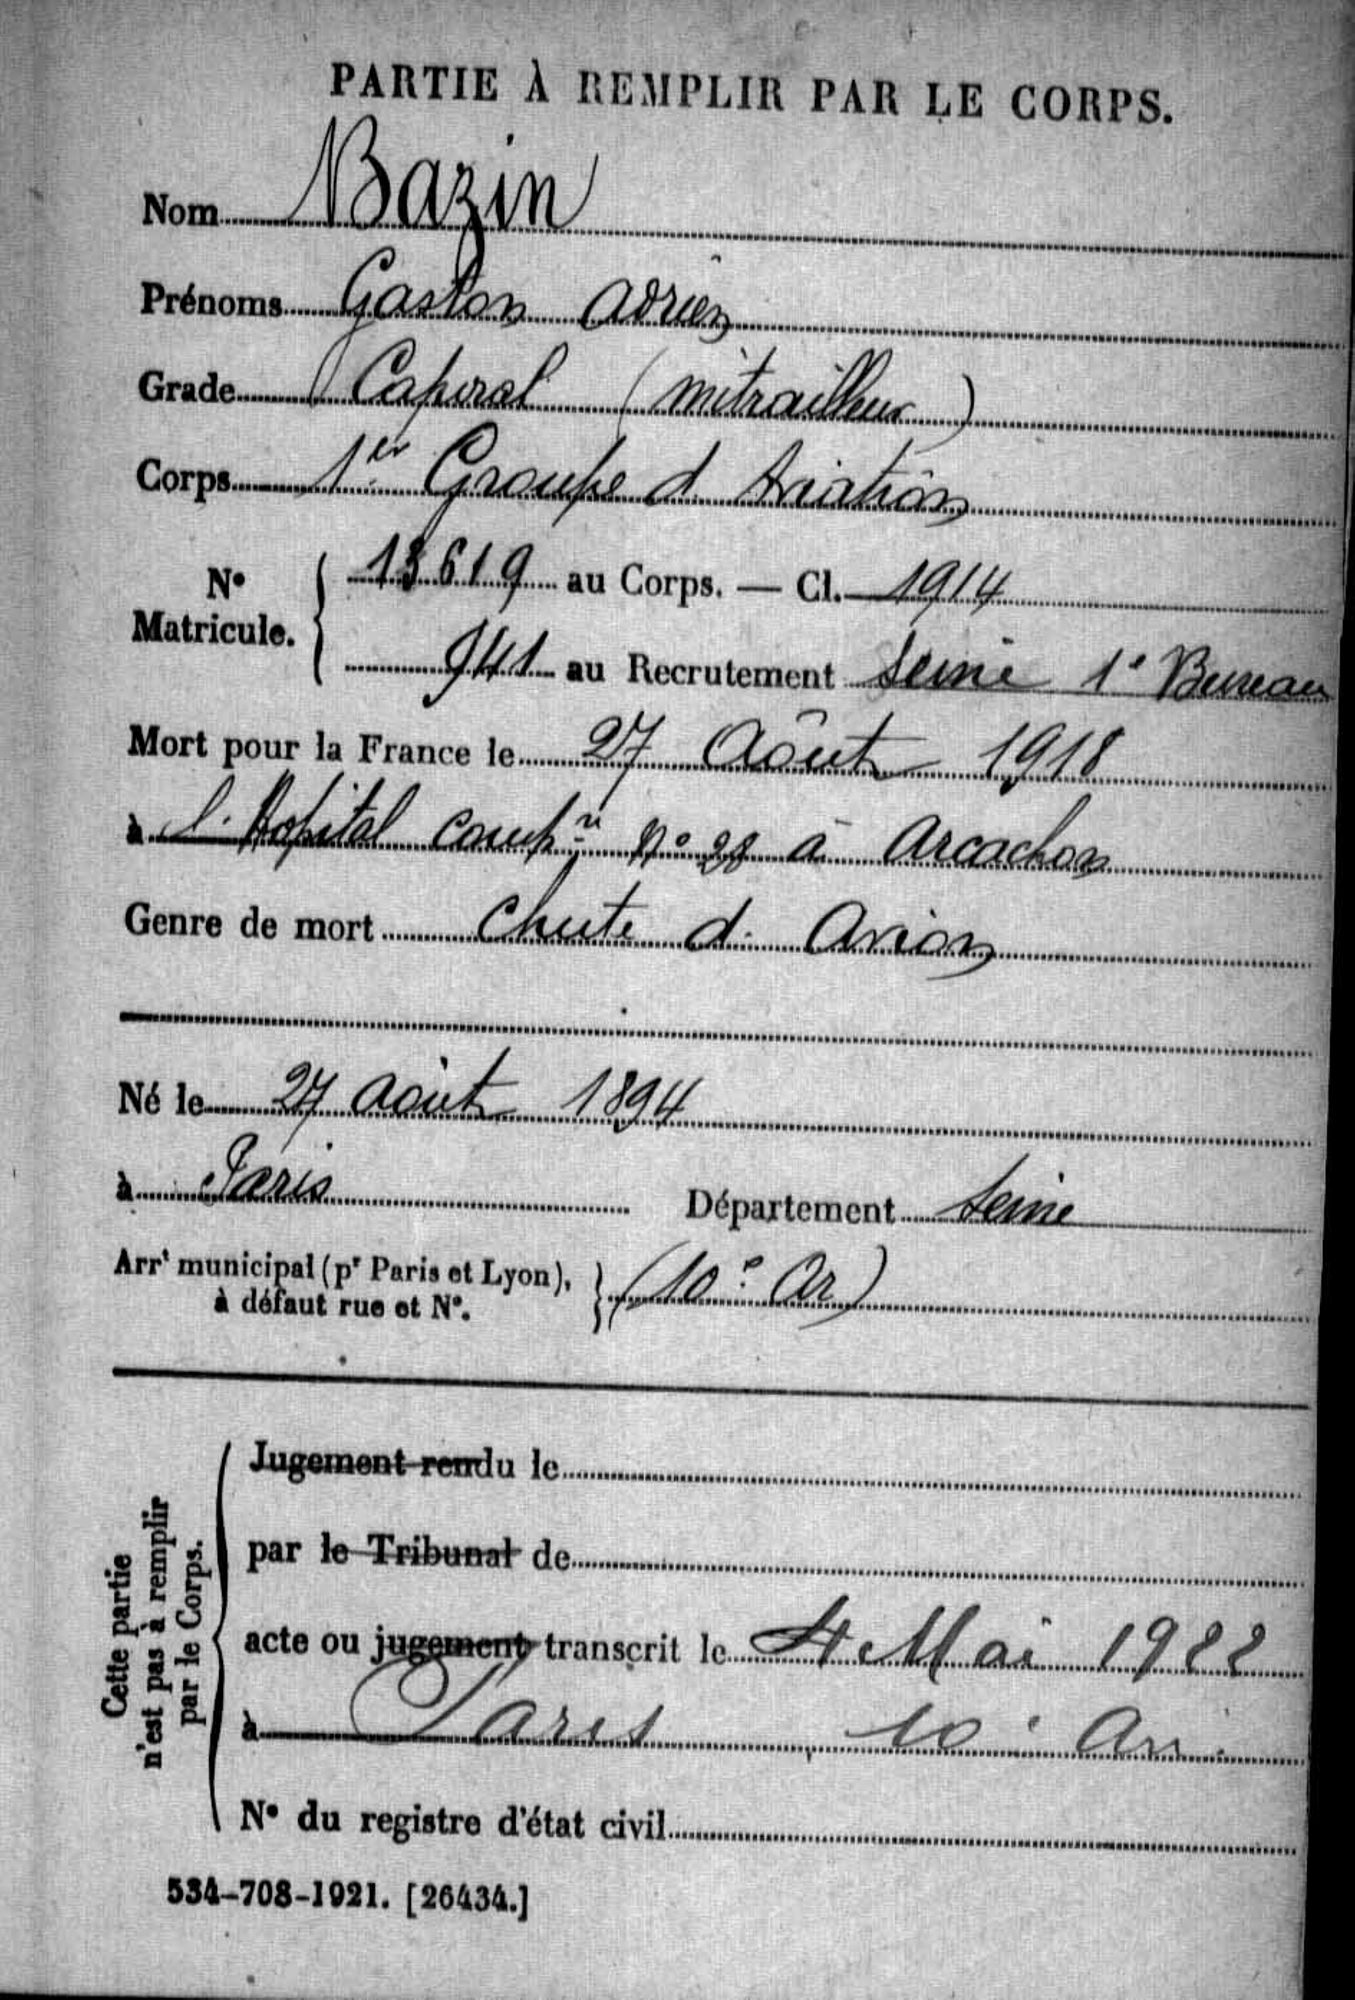 PARTIE À REMPLIR PAR LE CORPS.
Nom Bazin
Prénoms Gaston Adrien
Grade Caporal (mitrailleur)
Corps 1er Groupe d'Aviation
N° Matricule. 13619 au Corps. — Cl. 1914
941 au Recrutement Seine 1e Bureau
Mort pour la France le 27 Août 1918
à l'Hopital compre N° 28 à Arcachon
Genre de mort chute d'Avion
Né le 27 Août 1894
à Paris Département Seine
Arrt municipal (pr Paris et Lyon), (10e Ar)
à défaut rue et N°.
Cette partie
n'est pas à remplir
par le Corps.
Jugement rendu le
par le Tribunal de
acte ou jugement transcrit le 4 Mai 1922
à Paris 10e Arr.
N° du registre d'état civil
534-708-1921. [26434.]